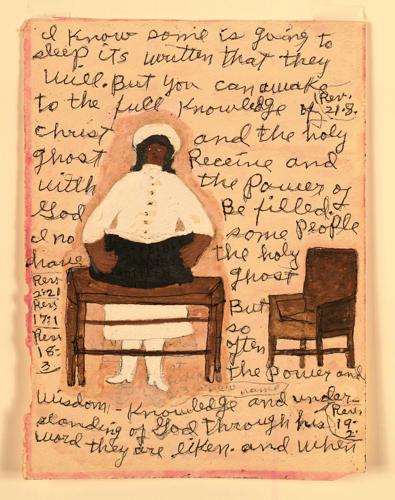 I know some is going to
sleep its written that they
will. But you can awake
to the full knowledge of
Rev.
21-8-
Christ and the holy
ghost Receive and
with the Power of
God Be filled.
I no some People
have the holy
ghost
Rev
2:21
Rev
17:1
Rev
18:
3
But
so
often
the Power and
new name
wisdom - Knowledge and under-
standing of God Through his
Rev
19-
2.
word they are liken. and when